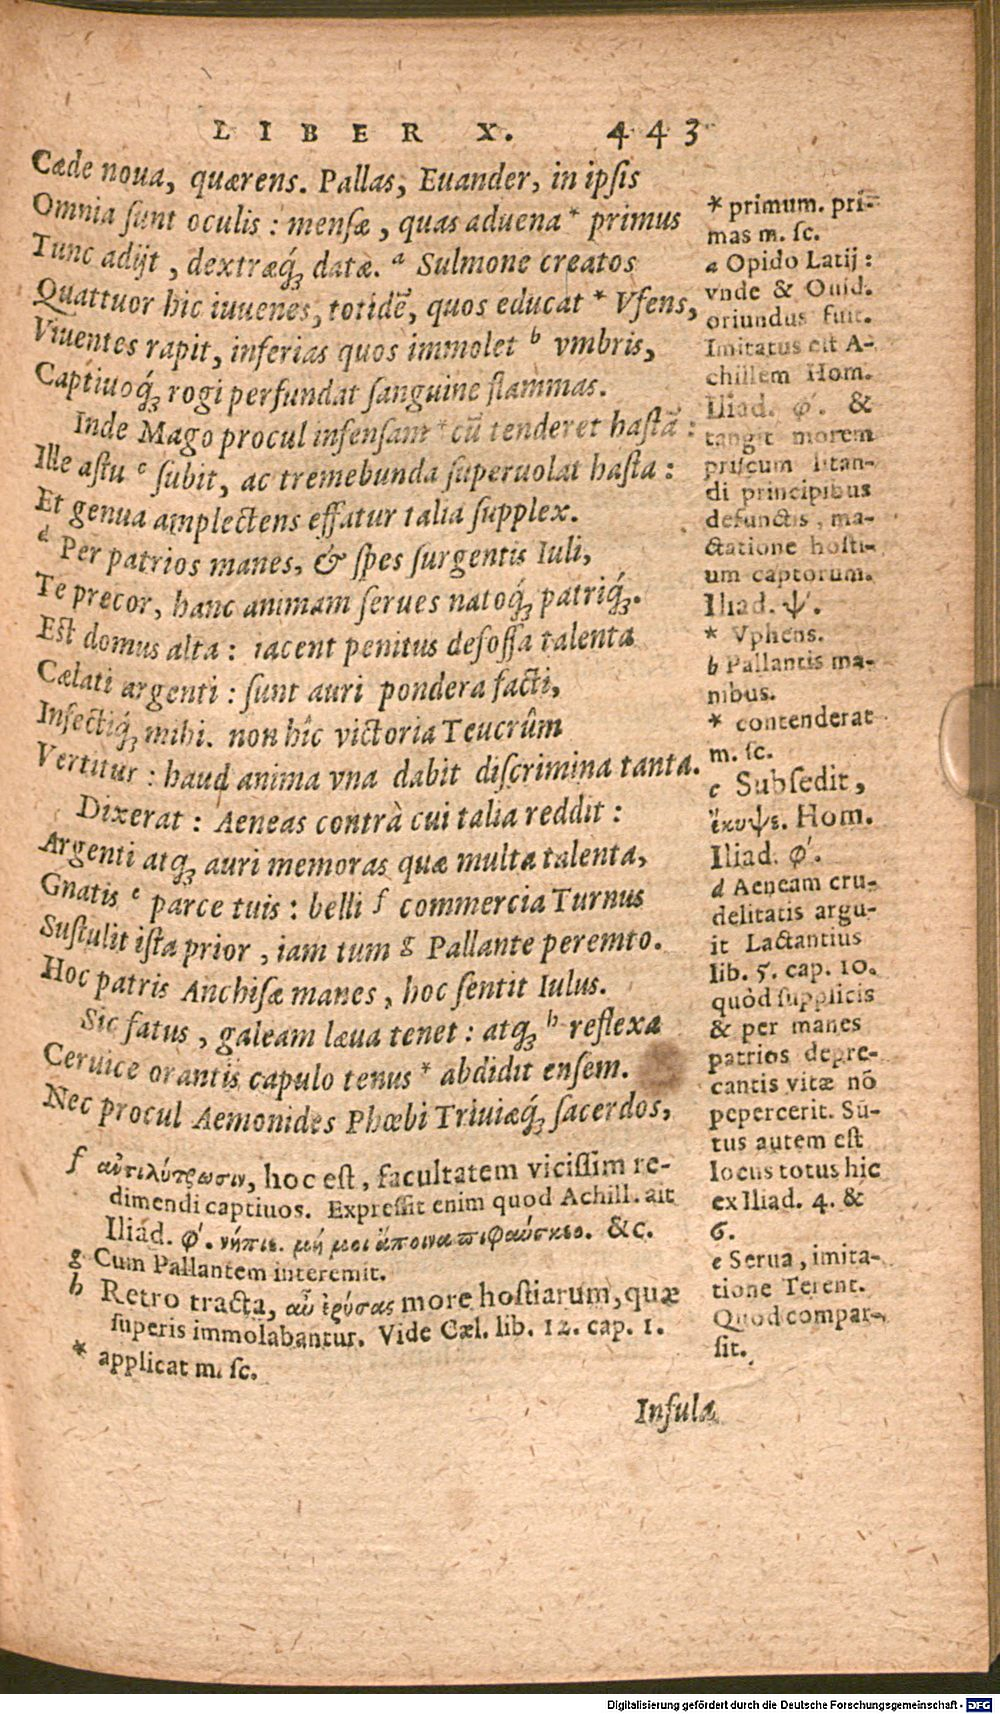 LIBER X. 443
Cæde noua, quærens. Pallas, Euander, in ipsis
Omnia sunt oculis: mensæ, quas aduena * primus
Tunc adijt, dextræq́; datæ. a Sulmone creatos
Quattuor hic iuuenes, totidē, quos educat * Vfens,
Viuentes rapit, inferias quos immolet b vmbris,
Captiuoq́; rogi perfundat sanguine flammas.
Inde Mago procul infensam * cū tenderet hastā:
Ille astu c subit, ac tremebunda superuolat hasta:
Et genua amplectens effatur talia supplex.
d Per patrios manes, & spes surgentis Iuli,
Te precor, hanc animam serues natoq́; patriq́;.
Est domus alta: iacent penitus defossa talenta
Cælati argenti: sunt auri pondera facti,
Infectiq́; mihi. non hîc victoria Teucrûm
Vertitur: haud anima vna dabit discrimina tanta.
Dixerat: Aeneas contrà cui talia reddit:
Argenti atq; auri memoras quæ multa talenta,
Gnatis e parce tuis: belli f commercia Turnus
Sustulit ista prior, iam tum g Pallante peremto.
Hoc patris Anchisæ manes, hoc sentit Iulus.
Sic fatus, galeam læua tenet: atq; h reflexa
Ceruice orantis capulo tenus * abdidit ensem.
Nec procul Aemonides Phœbi Triuiæq́; sacerdos,
* primum. pri-
mas m. sc.
a Opido Latij:
vnde & Ouid.
oriundus fuit.
Imitatus est A-
chillem Hom.
Iliad. φ́. &
tangit morem
priscum litan-
di principibus
defunctis, ma-
ctatione hosti-
um captorum.
Iliad. ψ́.
* Vphens.
b Pallantis ma-
nibus.
* contenderat
m. sc.
c Subsedit,
ἔκυψε. Hom.
Iliad. φ́.
d Aeneam cru-
delitatis argu-
it Lactantius
lib. 5. cap. 10.
quòd supplicis
& per manes
patrios depre-
cantis vitæ nō
pepercerit. Sū-
tus autem est
locus totus hic
ex Iliad. 4. &
6.
e Serua, imita-
tione Terent.
Quod compar-
sit.
f αὐτιλύτρωσιν, hoc est, facultatem vicissim re-
dimendi captiuos. Expressit enim quod Achill. ait
Iliad. φ́. νήπιε. μή μοι ἄποινα πιφαύσκεο. &c.
g Cum Pallantem interemit.
h Retro tracta, αὖ ἐρύσας more hostiarum, quæ
superis immolabantur. Vide Cæl. lib. 12. cap. 1.
* applicat m. sc.
Insula
Digitalisierung gefördert durch die Deutsche Forschungsgemeinschaft - DFG